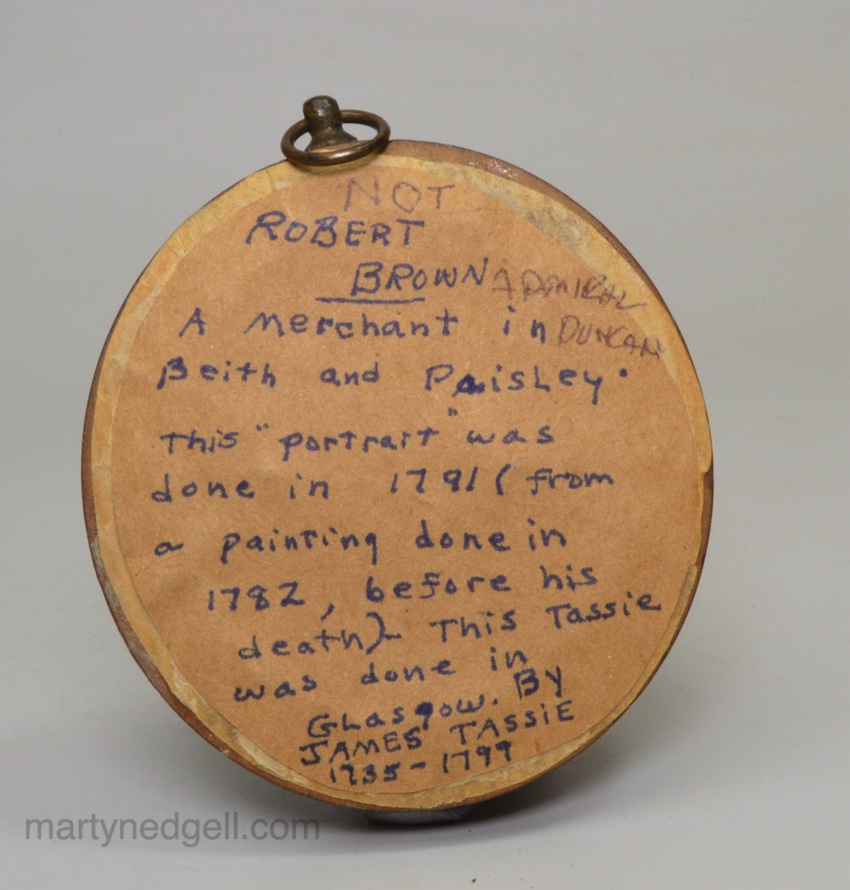 NOT
ROBERT
BROWN ADMIRAL
A merchant in DUNCAN
Beith and Paisley.
This "portrait" was
done in 1791 (from
a painting done in
1782, before his
death)- This Tassie
was done in
Glasgow. By
JAMES TASSIE
1735-1799
martynedgell.com